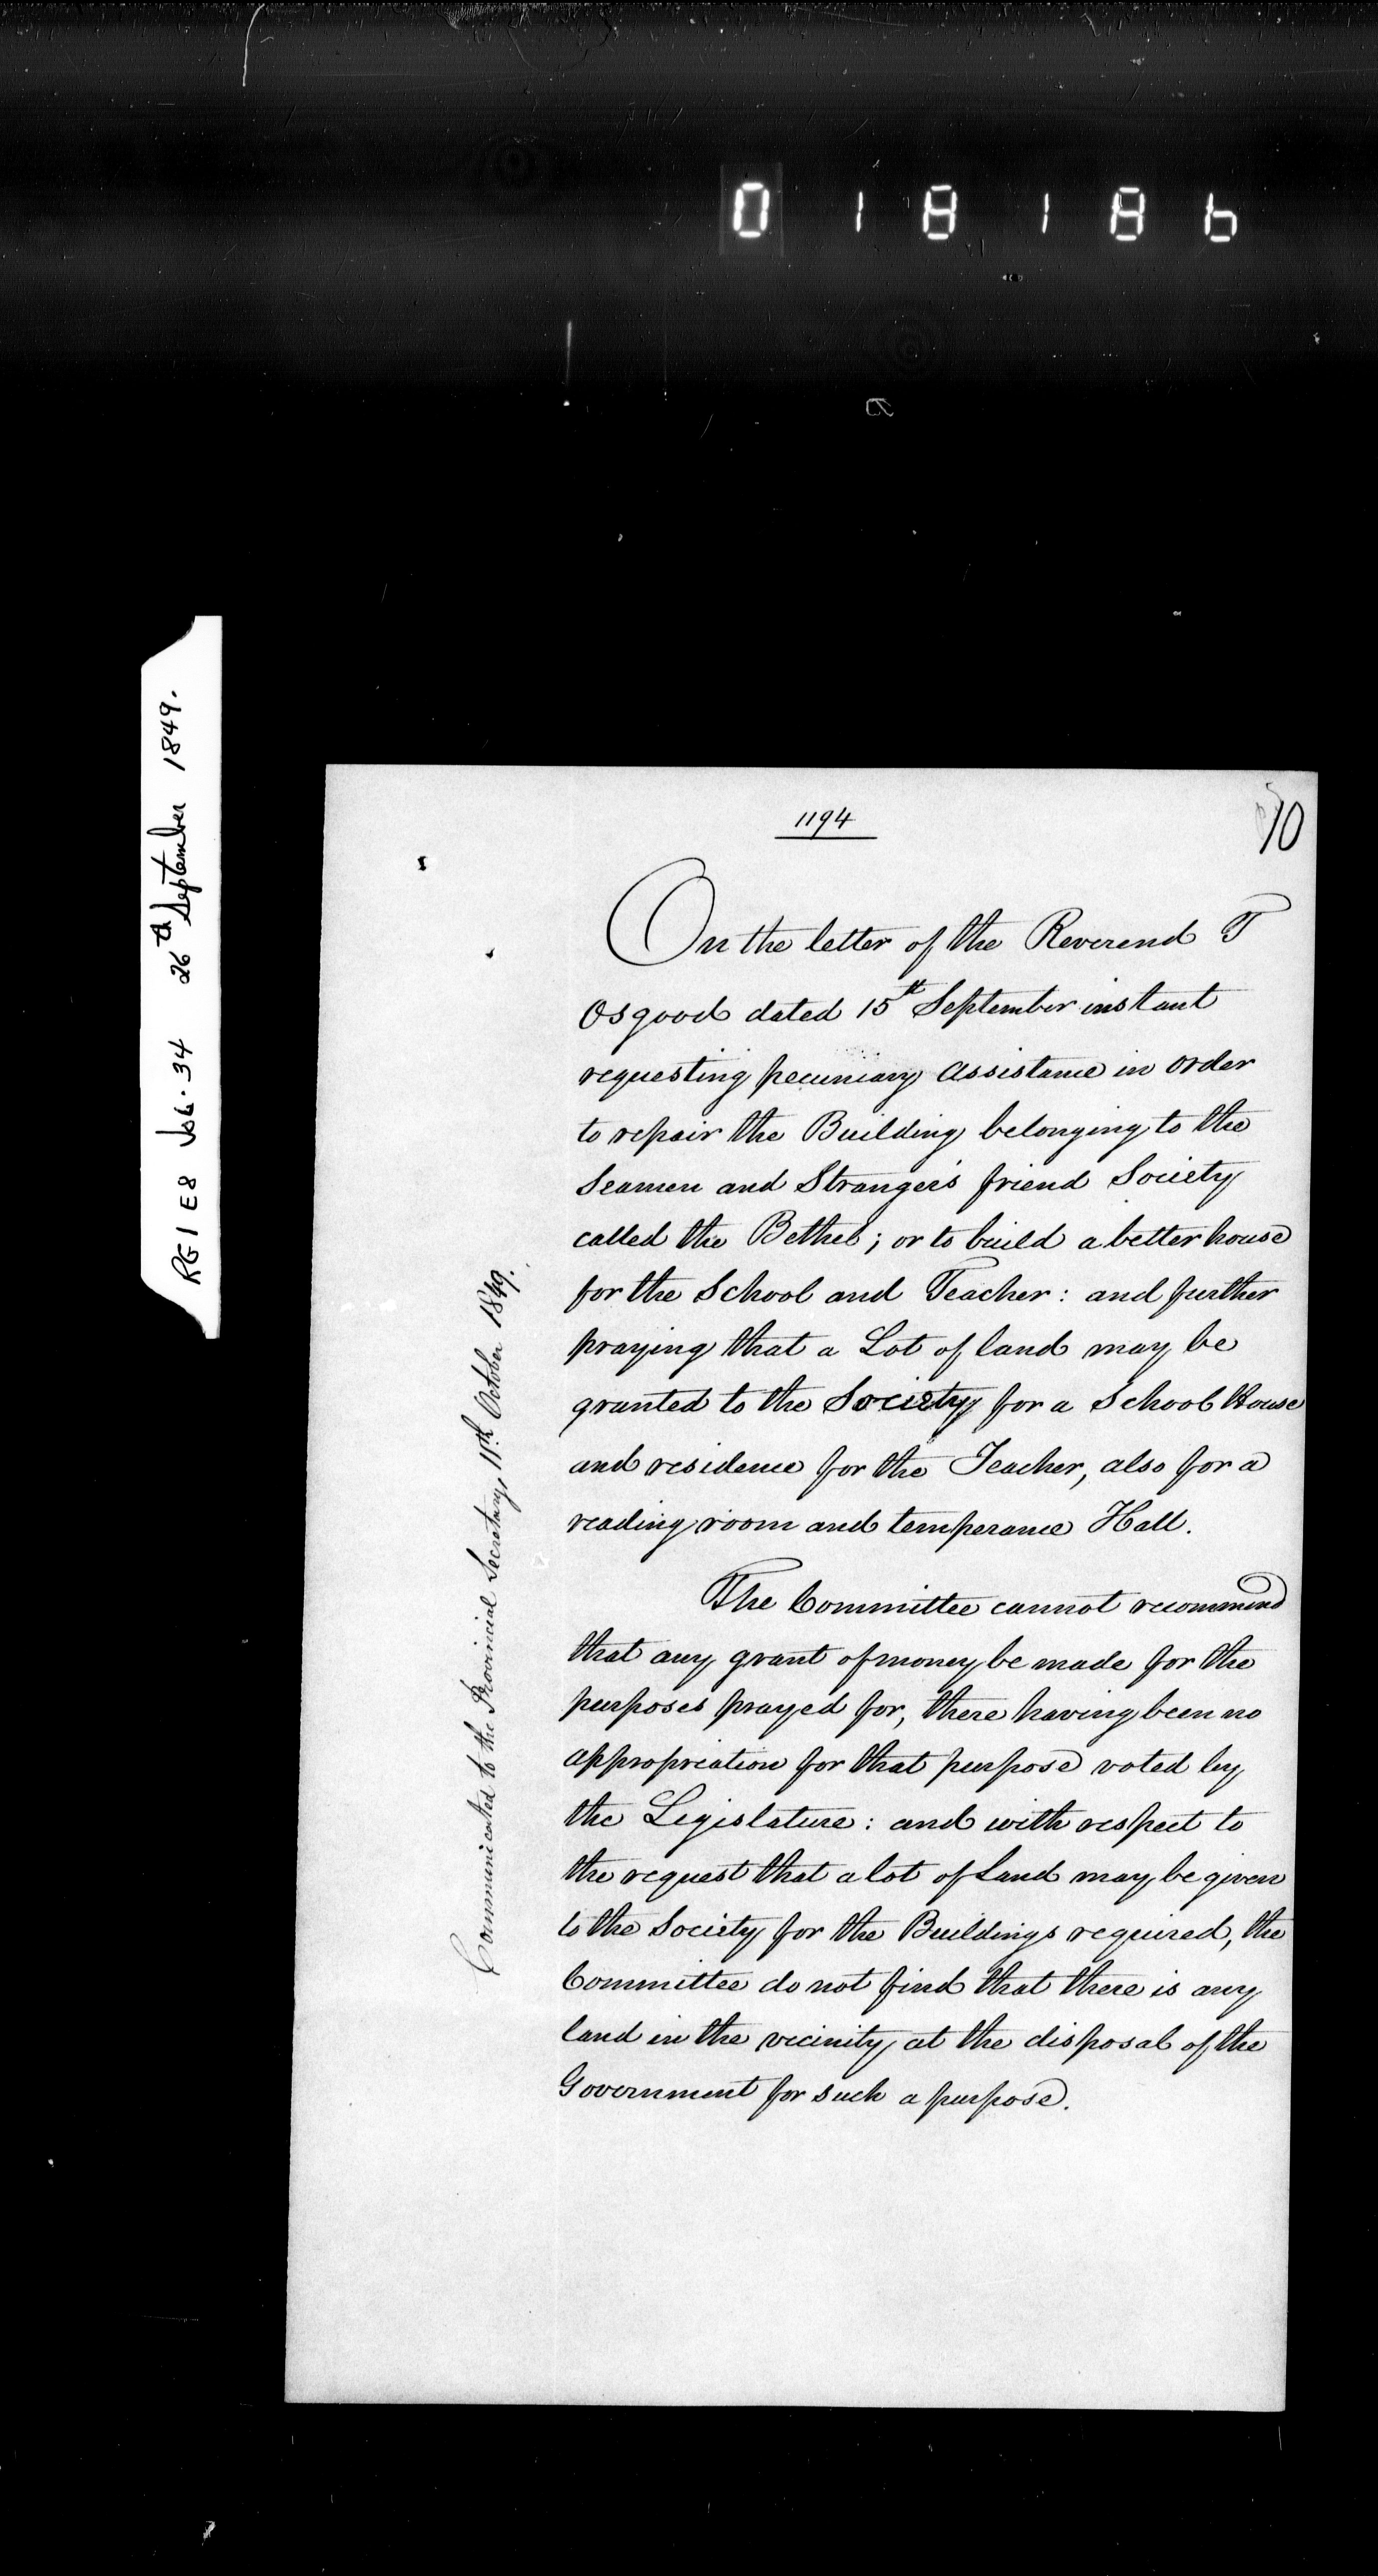 018186
RG1 E8 Vol. 34 26th September 1849.
1194
10
On the letter of the Reverend T
Osgood dated 15th September instant
requesting pecuniary assistance in order
to repair the Building belonging to the
Seamen and Stranger's friend Society
called the Bethel; or to build a better house
for the School and Teacher: and further
praying that a Lot of land may be
granted to the Society for a School House
and residence for the Teacher, also for a
reading room and temperance Hall.
The Committee cannot recommend
that any grant of money be made for the
purposes prayed for, there having been no
appropriation for that purpose voted by
the Legislature: and with respect to
the request that a lot of Land may be given
to the Society for the Buildings required, the
Committee do not find that there is any
land in the vicinity at the disposal of the
Government for such a purpose.
Communicated to the Provincial Secretary, 11th October 1849.